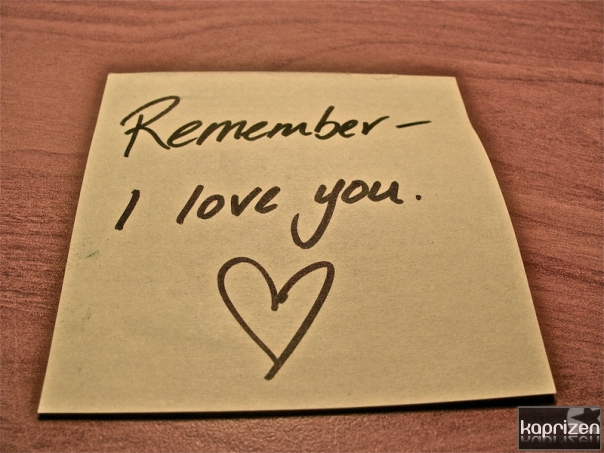 Remember –
I love you.
kaprizen